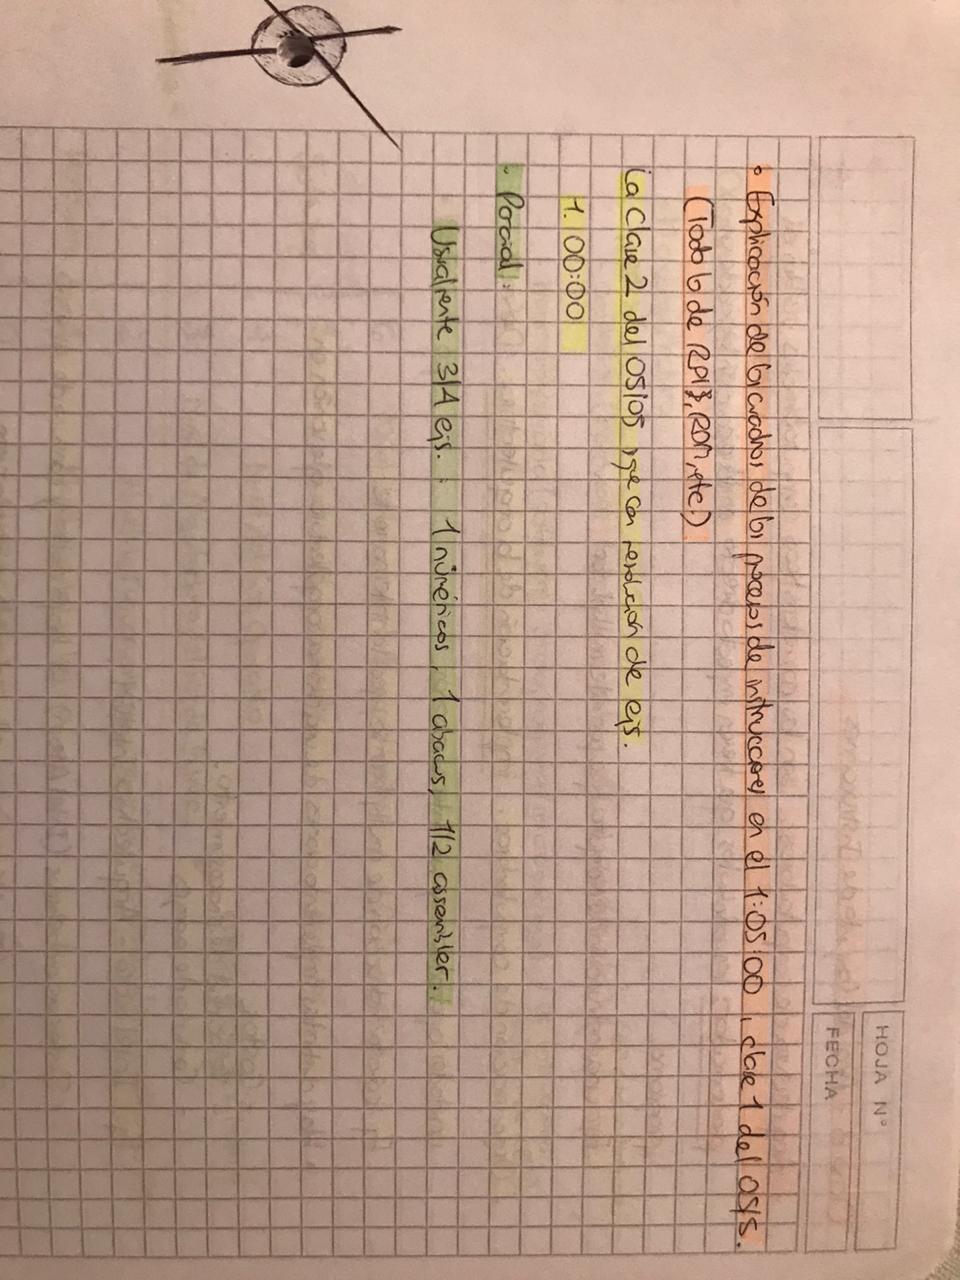 HOJA N°
FECHA
° Explicación de los cuadros de los procesos de instrucciones en el 1:05:00, clase 1 del 05/5.
(Todo lo de RPI, ROM, etc.)
La Clase 2 del 05/05, es con resolución de ejs.
1:00:00
· Parcial:
Usualmente 3/4 ejs. 1 numéricos, 1 abacus, 1/2 assembler.